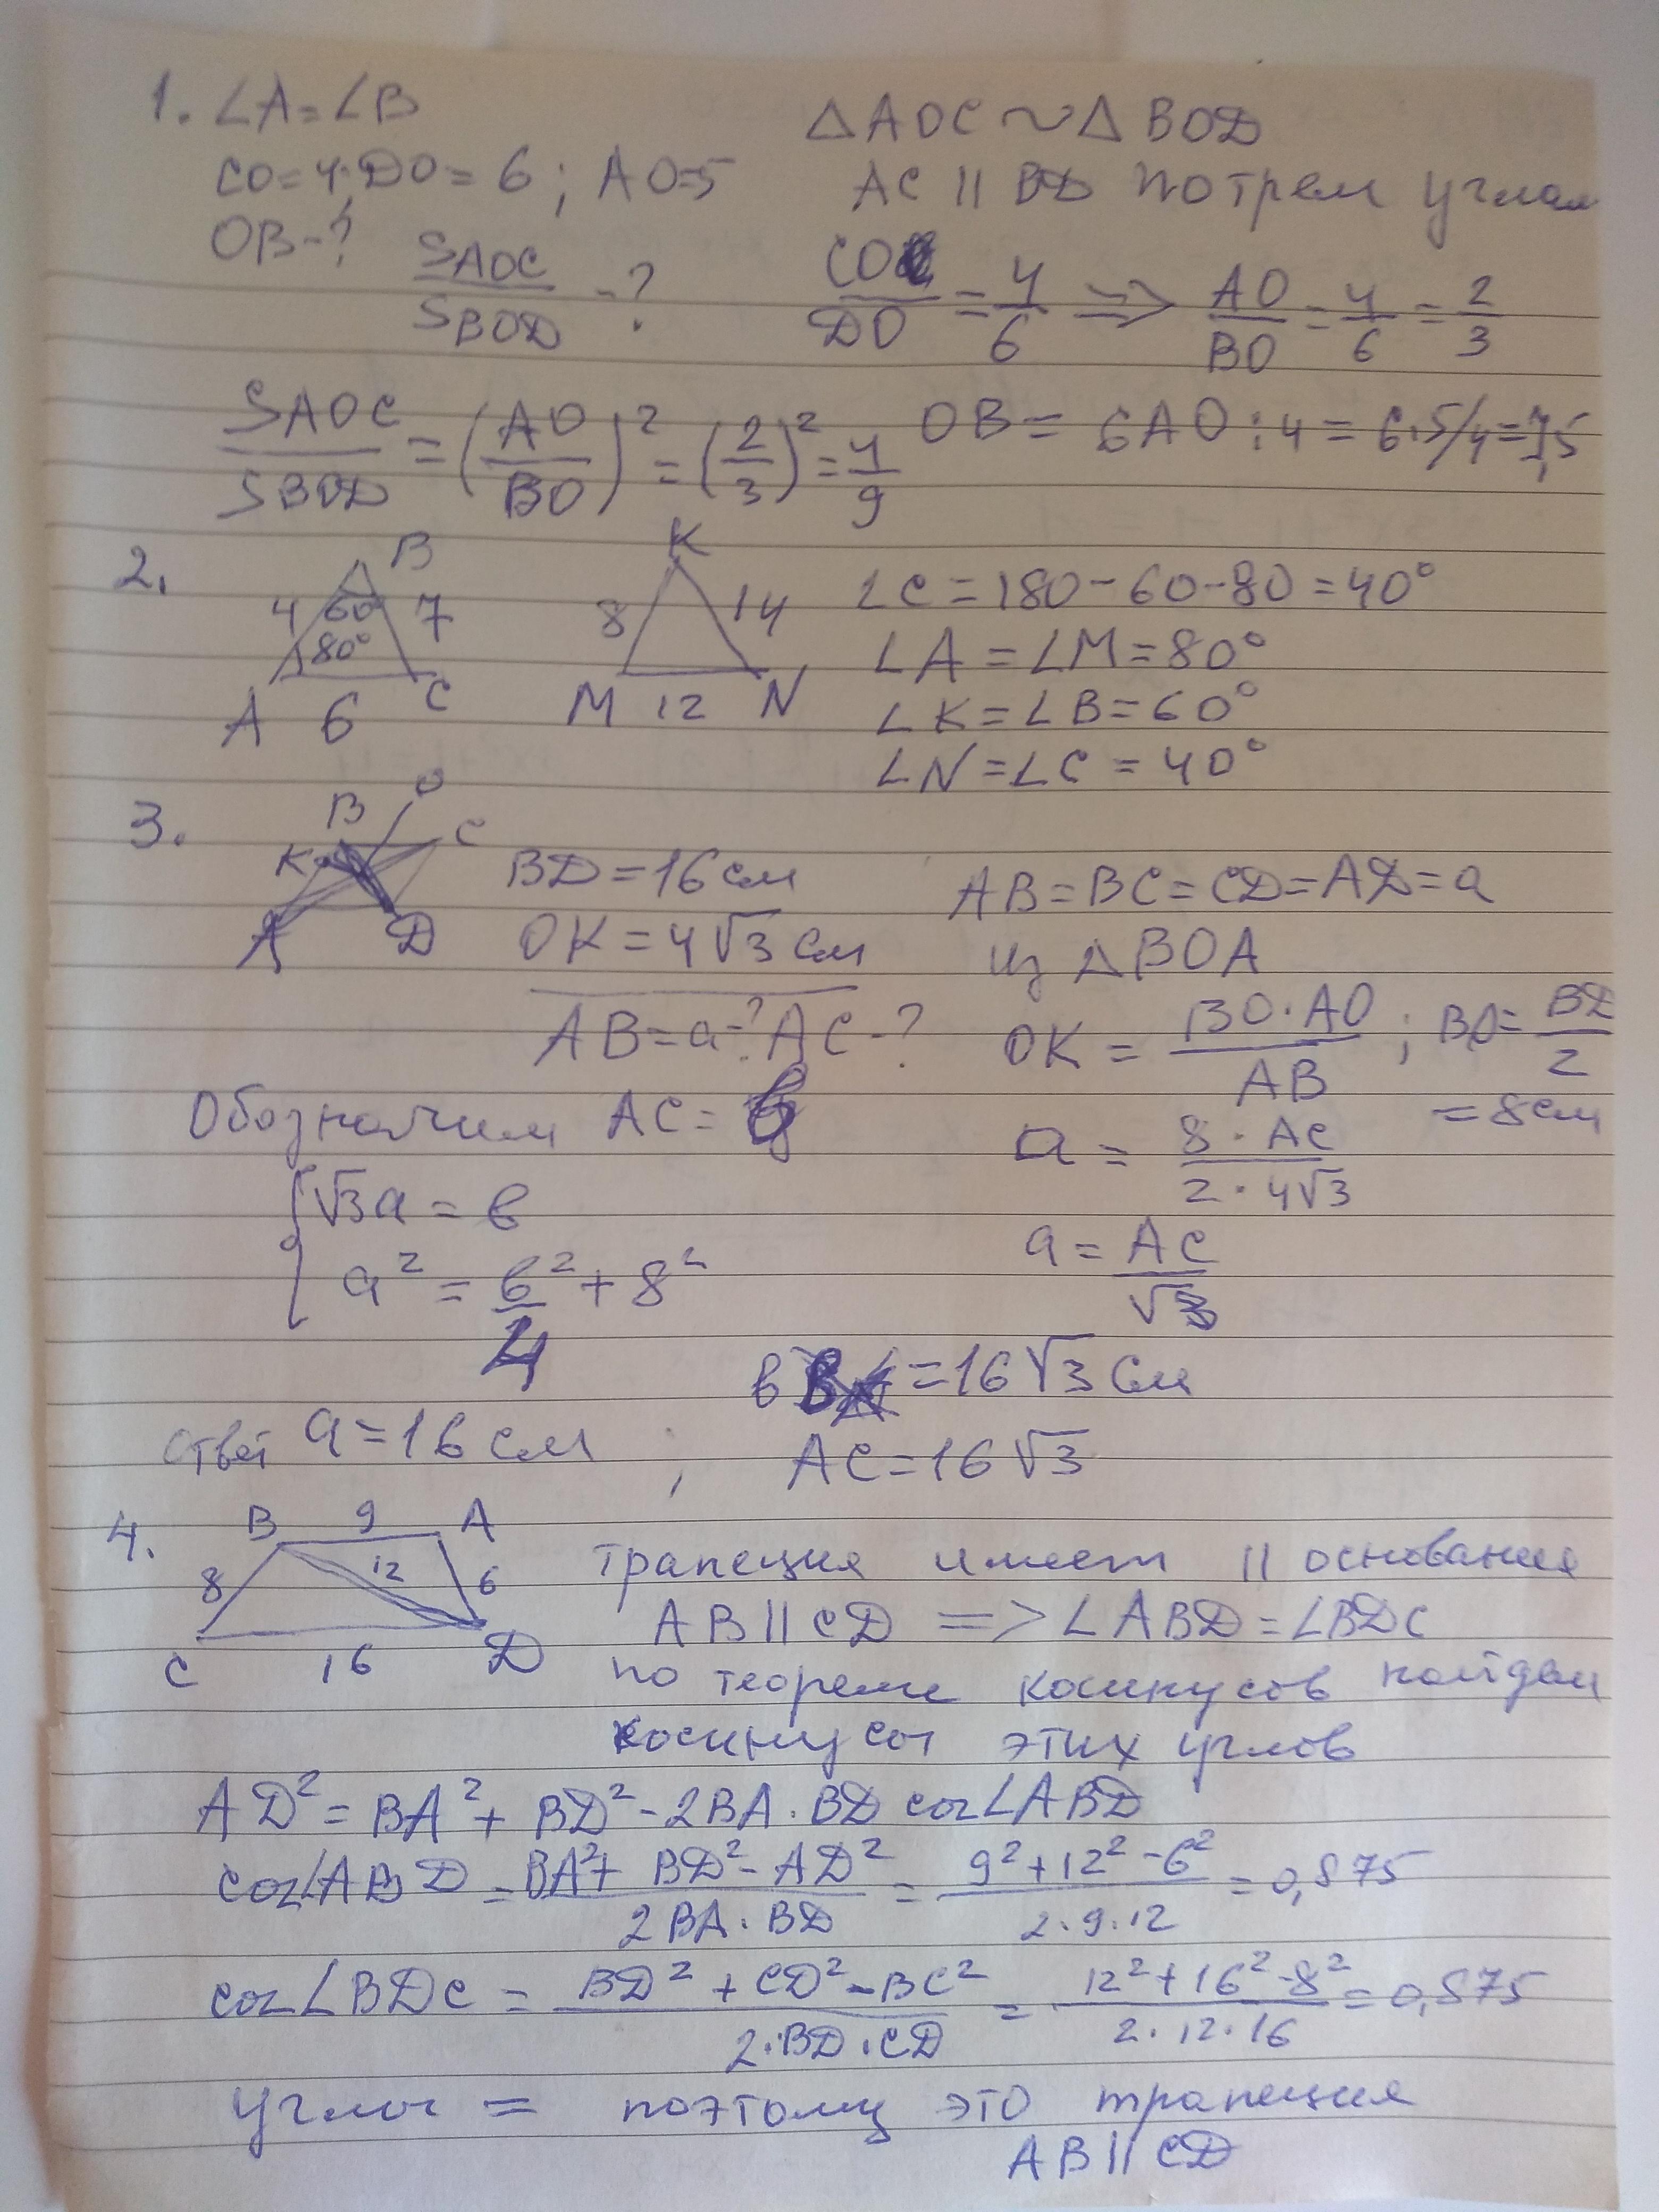 1. ∠A=∠B
△AOC ~ △BOD
CO=4; DO=6; AO=5
AC || BD по трем углам
OB-? SAOC/SBOD -?
CO/DO = 4/6 => AO/BO = 4/6 = 2/3
SAOC/SBOD = (AO/BO)² = (2/3)² = 4/9
OB = 6AO:4 = 6·5/4=7,5
2.
B
4 60° 7
80°
A 6 C
K
8 14
M 12 N
∠C=180-60-80=40°
∠A=∠M=80°
∠K=∠B=60°
∠N=∠C=40°
3.
B O
K C
A D
BD=16см
OK=4√3 см
AB=a-? AC-?
AB=BC=CD=AD=a
из △BOA
OK = BO·AO/AB ; BO = BD/2
=8см
Обозначим AC=в
a = 8·AC/2·4√3
√3a=в
a=AC/√3
a²=в²/4+8²
в=16√3 см
ответ a=16 см ; AC=16√3
4.
B 9 A
8 12 6
C 16 D
трапеция имеет || основания
AB||CD => ∠ABD=∠BDC
по теореме косинусов найдем
косинусы этих углов
AD²=BA²+BD²-2BA·BD cos∠ABD
cos∠ABD = BA²+BD²-AD²/2BA·BD = 9²+12²-6²/2·9·12 = 0,875
cos∠BDC = BD²+CD²-BC²/2·BD·CD = 12²+16²-8²/2·12·16 = 0,875
углы = поэтому это трапеция
AB||CD